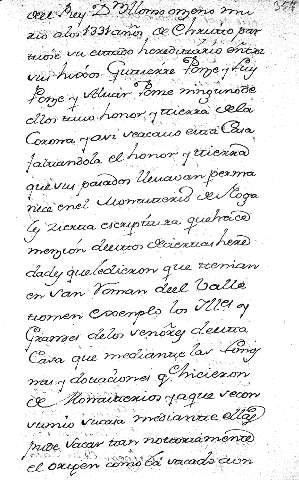 del Rey D. Alonso onzeno mu
rio a los 1331 años de Christo par
tiose su estado hereditario entre
sus hijos Gutierre Ponze y Ruy
Ponze y Alvar Ponze ninguno de
ellos tuvo honor, y tierra de la
Corona y asi se acavo esta Casa
faltandola el honor y tierra
que sus pasados llevavan perma
nece en el Monasterio de Noga
les cierta escriptura que hace
mencion de unos ciertas hered
dades que le dieron que tenian
en San Roman del Valle
tomen exemplo los Illes y
Grandes de los señores de esta
Casa que mediante las
y dotaciones q hicieron
de Monasterios ya que se con
sumio su casa mediante ellas
pude sacar tan notoriamente
el origen como la sacado aun